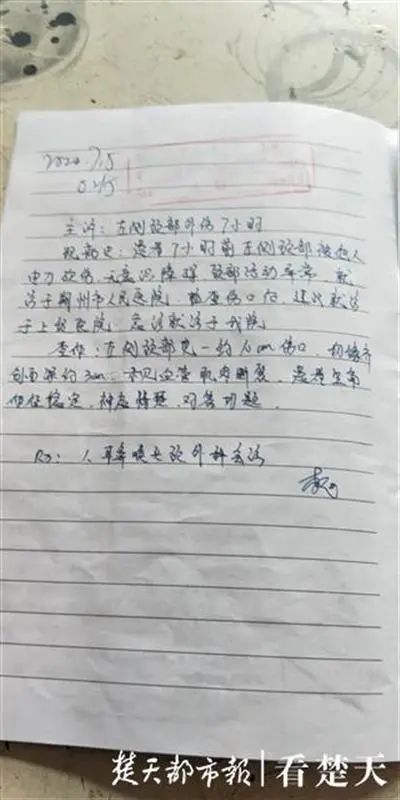 2020.7.5
0:45
主诉：左侧颈部外伤7小时
现病史：患者7小时前左侧颈部被他人
用刀砍伤，无意识障碍，颈部活动异常，就
诊于荆州市人民医院，检查伤口后，建议就诊
于上级医院，急诊就诊于我院
查体：左侧颈部见一约10cm伤口，
创面深约3cm，未见血管肌肉断裂，患者生命
体征稳定，神志清楚，对答切题。
Rx：1、耳鼻喉头颈外科会诊
楚天都市報 看楚天